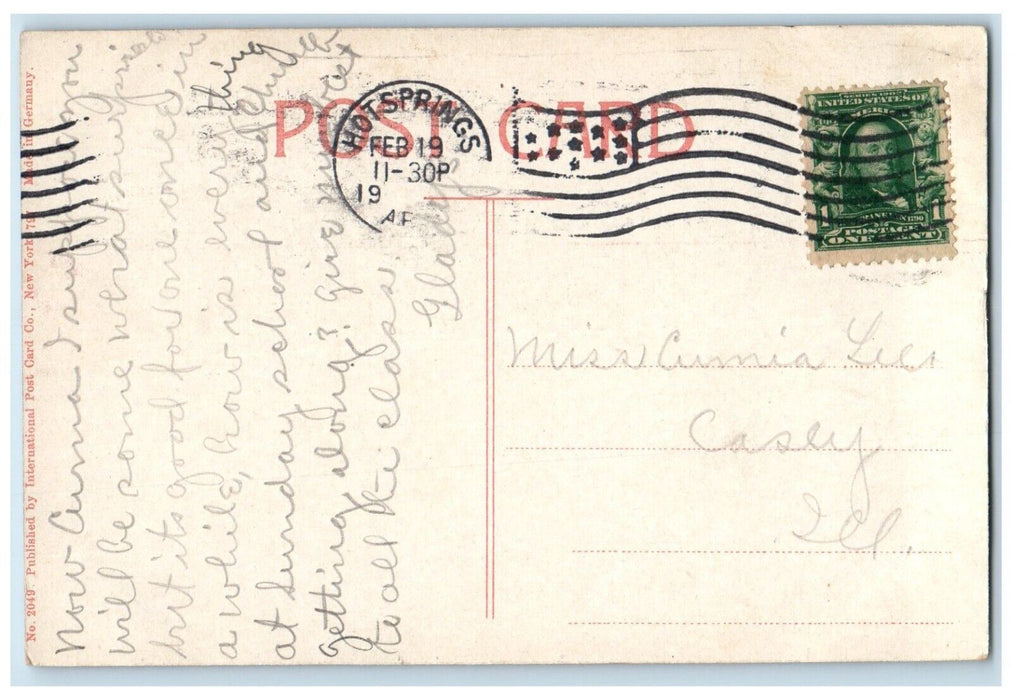 POST CARD
HOT SPRINGS
FEB 19
11-30P
19
SERIES 1902
UNITED STATES OF AMERICA
FRANKLIN 1790
POSTAGE
1 ONE CENT 1
No. 2049. Published by International Post Card Co., New York Made in Germany.
Now I suppose you
will be some what surprised
but its good for one once in
a while, how is every thing
at Sunday school and church
getting along? Give my best
to all the class
Gladys
Miss
Casey
Ill.